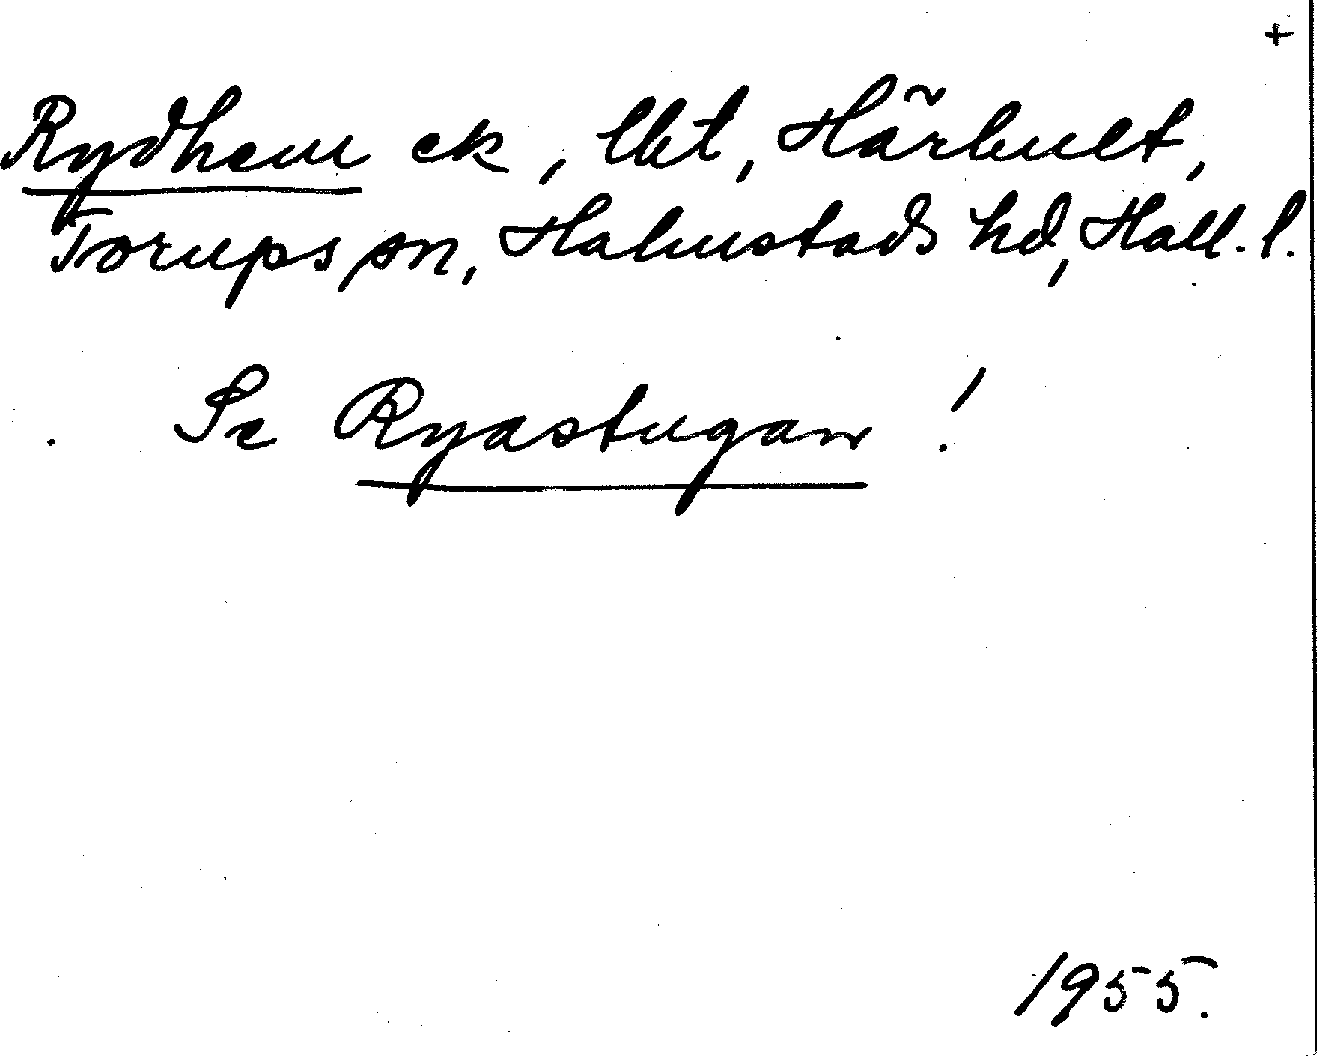 +
Rydhem ek, lht, Härbult,
Torups sn, Halmstads hd, Hall. l.
Se Ryastugan!
1955.